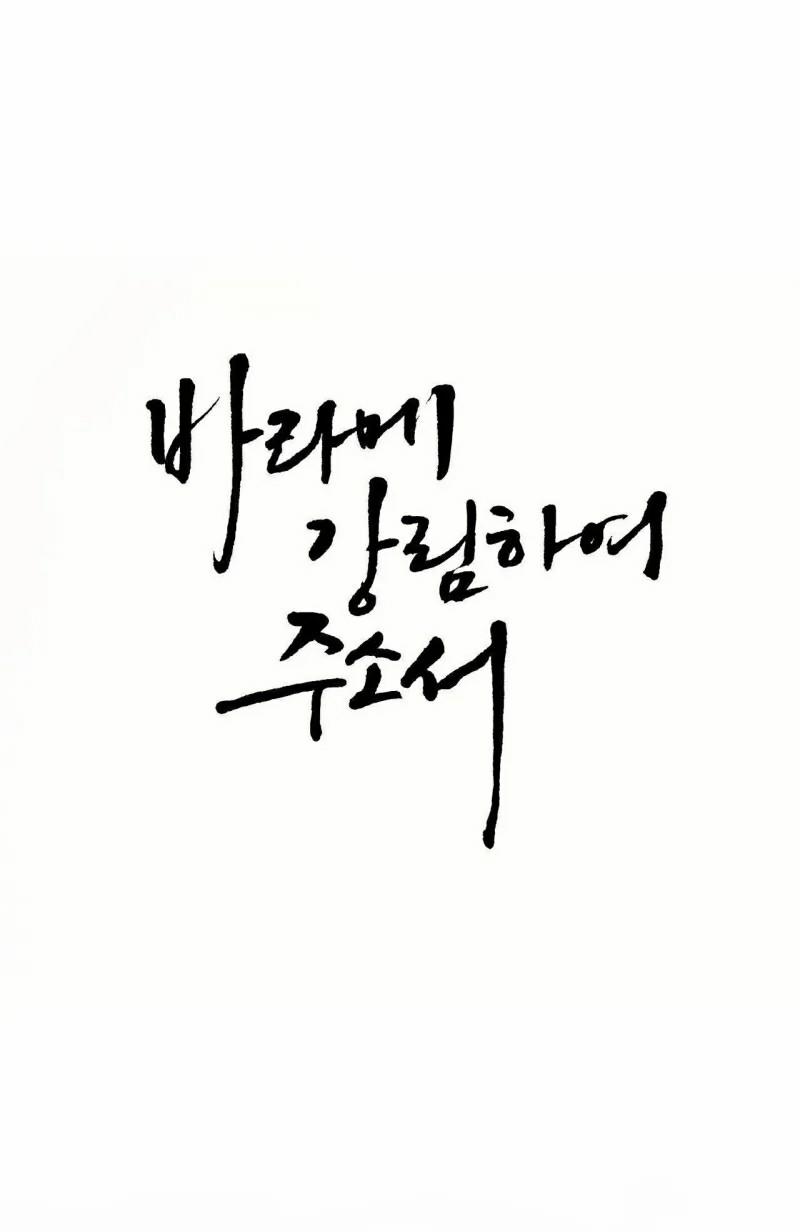 바라메
강림하여
주소서